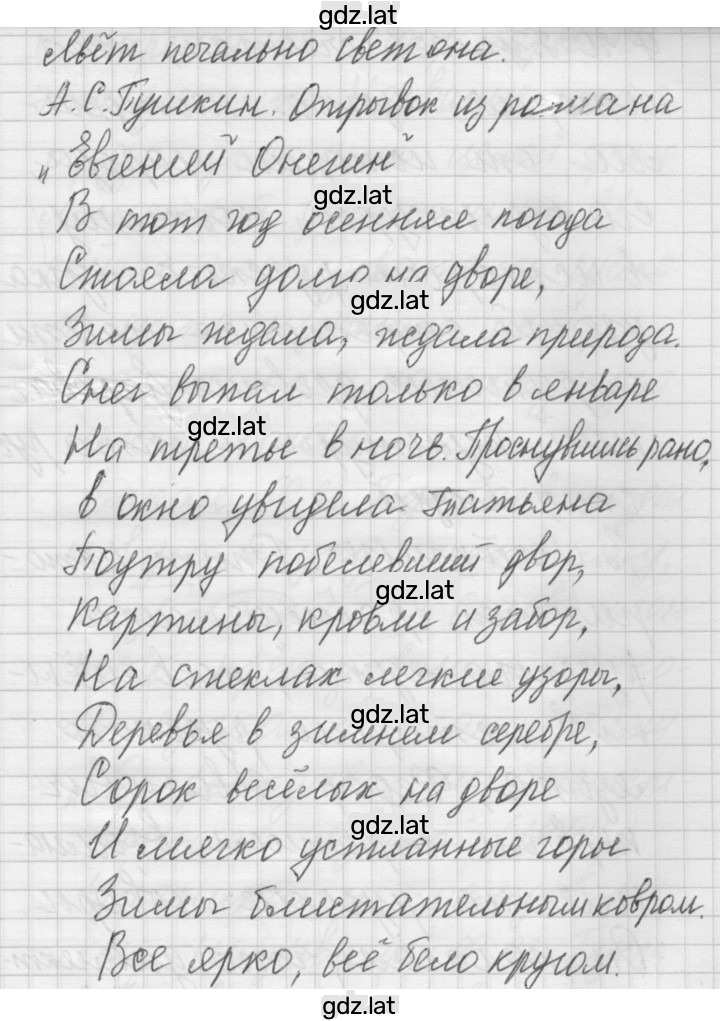 gdz.lat
Льёт печально свет она.
А.С.Пушкин. Отрывок из романа
„Евгений Онегин"
gdz.lat
В тот год осенняя погода
Стояла долго на дворе,
gdz.lat
Зимы ждала, ждала природа.
Снег выпал только в январе
gdz.lat
На третье в ночь. Проснувшись рано,
В окно увидела Татьяна
Поутру побелевший двор,
gdz.lat
Картины, кровли и забор,
На стеклах легкие узоры,
gdz.lat
Деревья в зимнем серебре,
Сорок весёлых на дворе
gdz.lat
И мягко устланные горы
Зимы блистательным ковром.
Все ярко, всё бело кругом.
gdz.lat